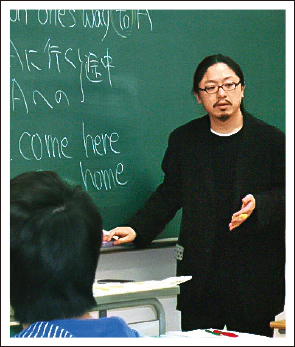 on one's way (to) A
Aに行く途中
Aへの
come here
home